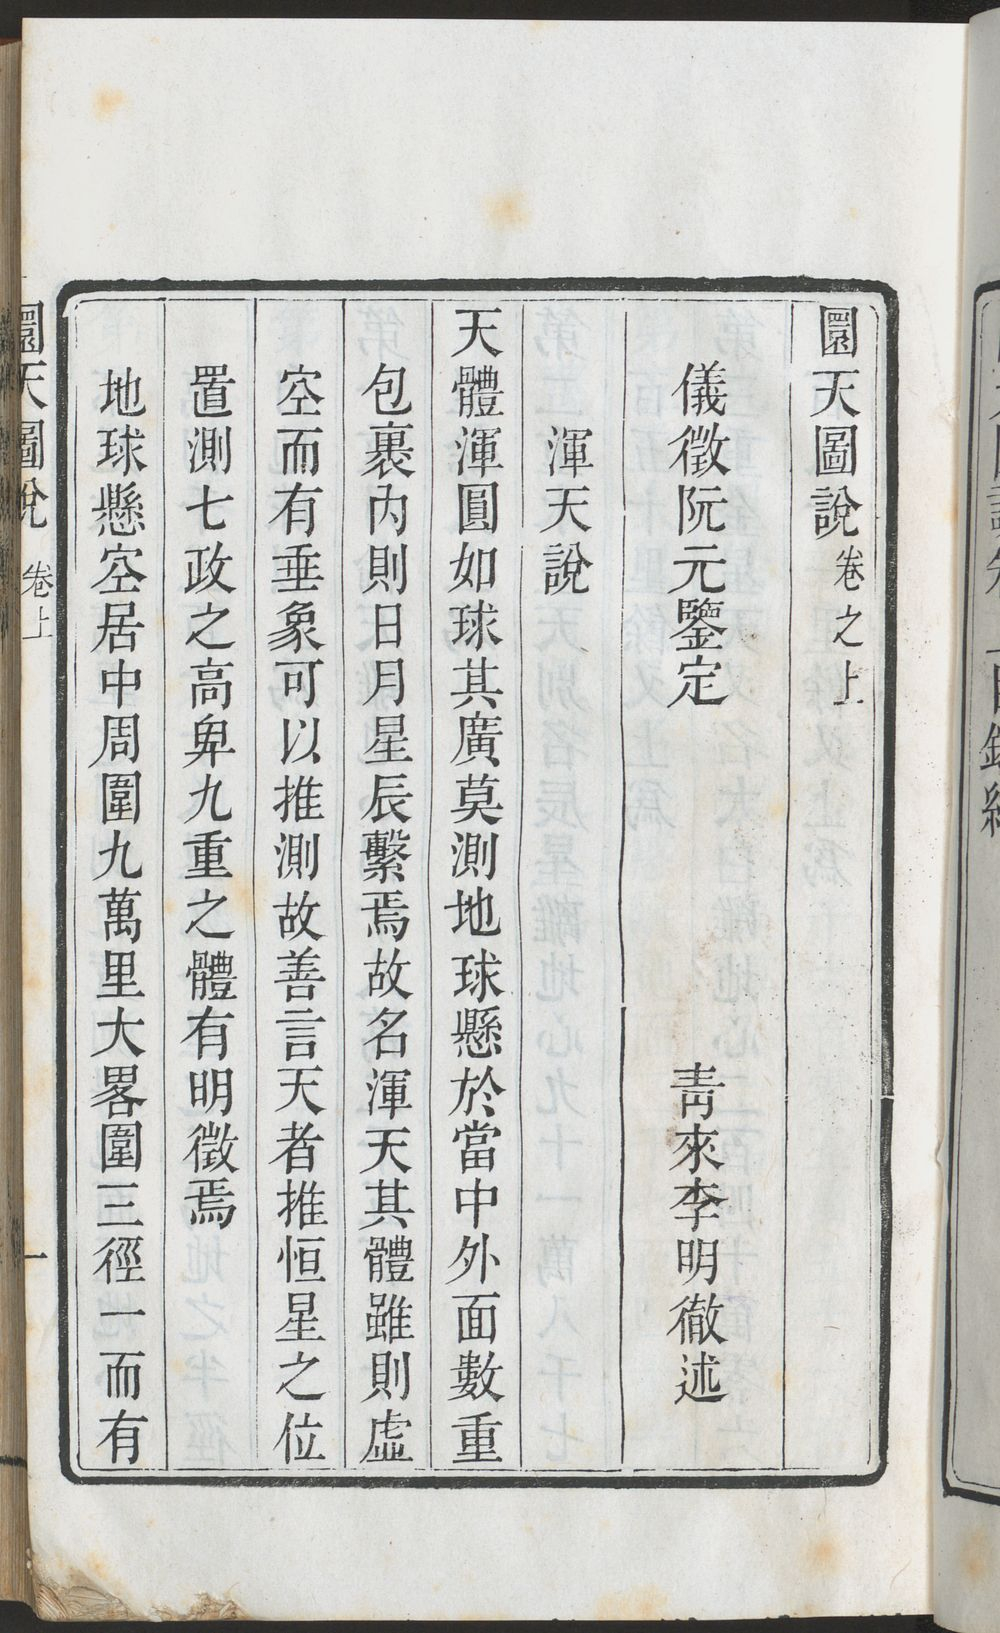 圜天圖說卷之上
儀徵阮元鑒定　青來李明徹述
渾天說
天體渾圓如球其廣莫測地球懸於當中外面數重
包裹內則日月星辰繫焉故名渾天其體雖則虛
空而有垂象可以推測故善言天者推恒星之位
置測七政之高卑九重之體有明徵焉
地球懸空居中周圍九萬里大畧圍三徑一而有
圜天圖說　卷上　一